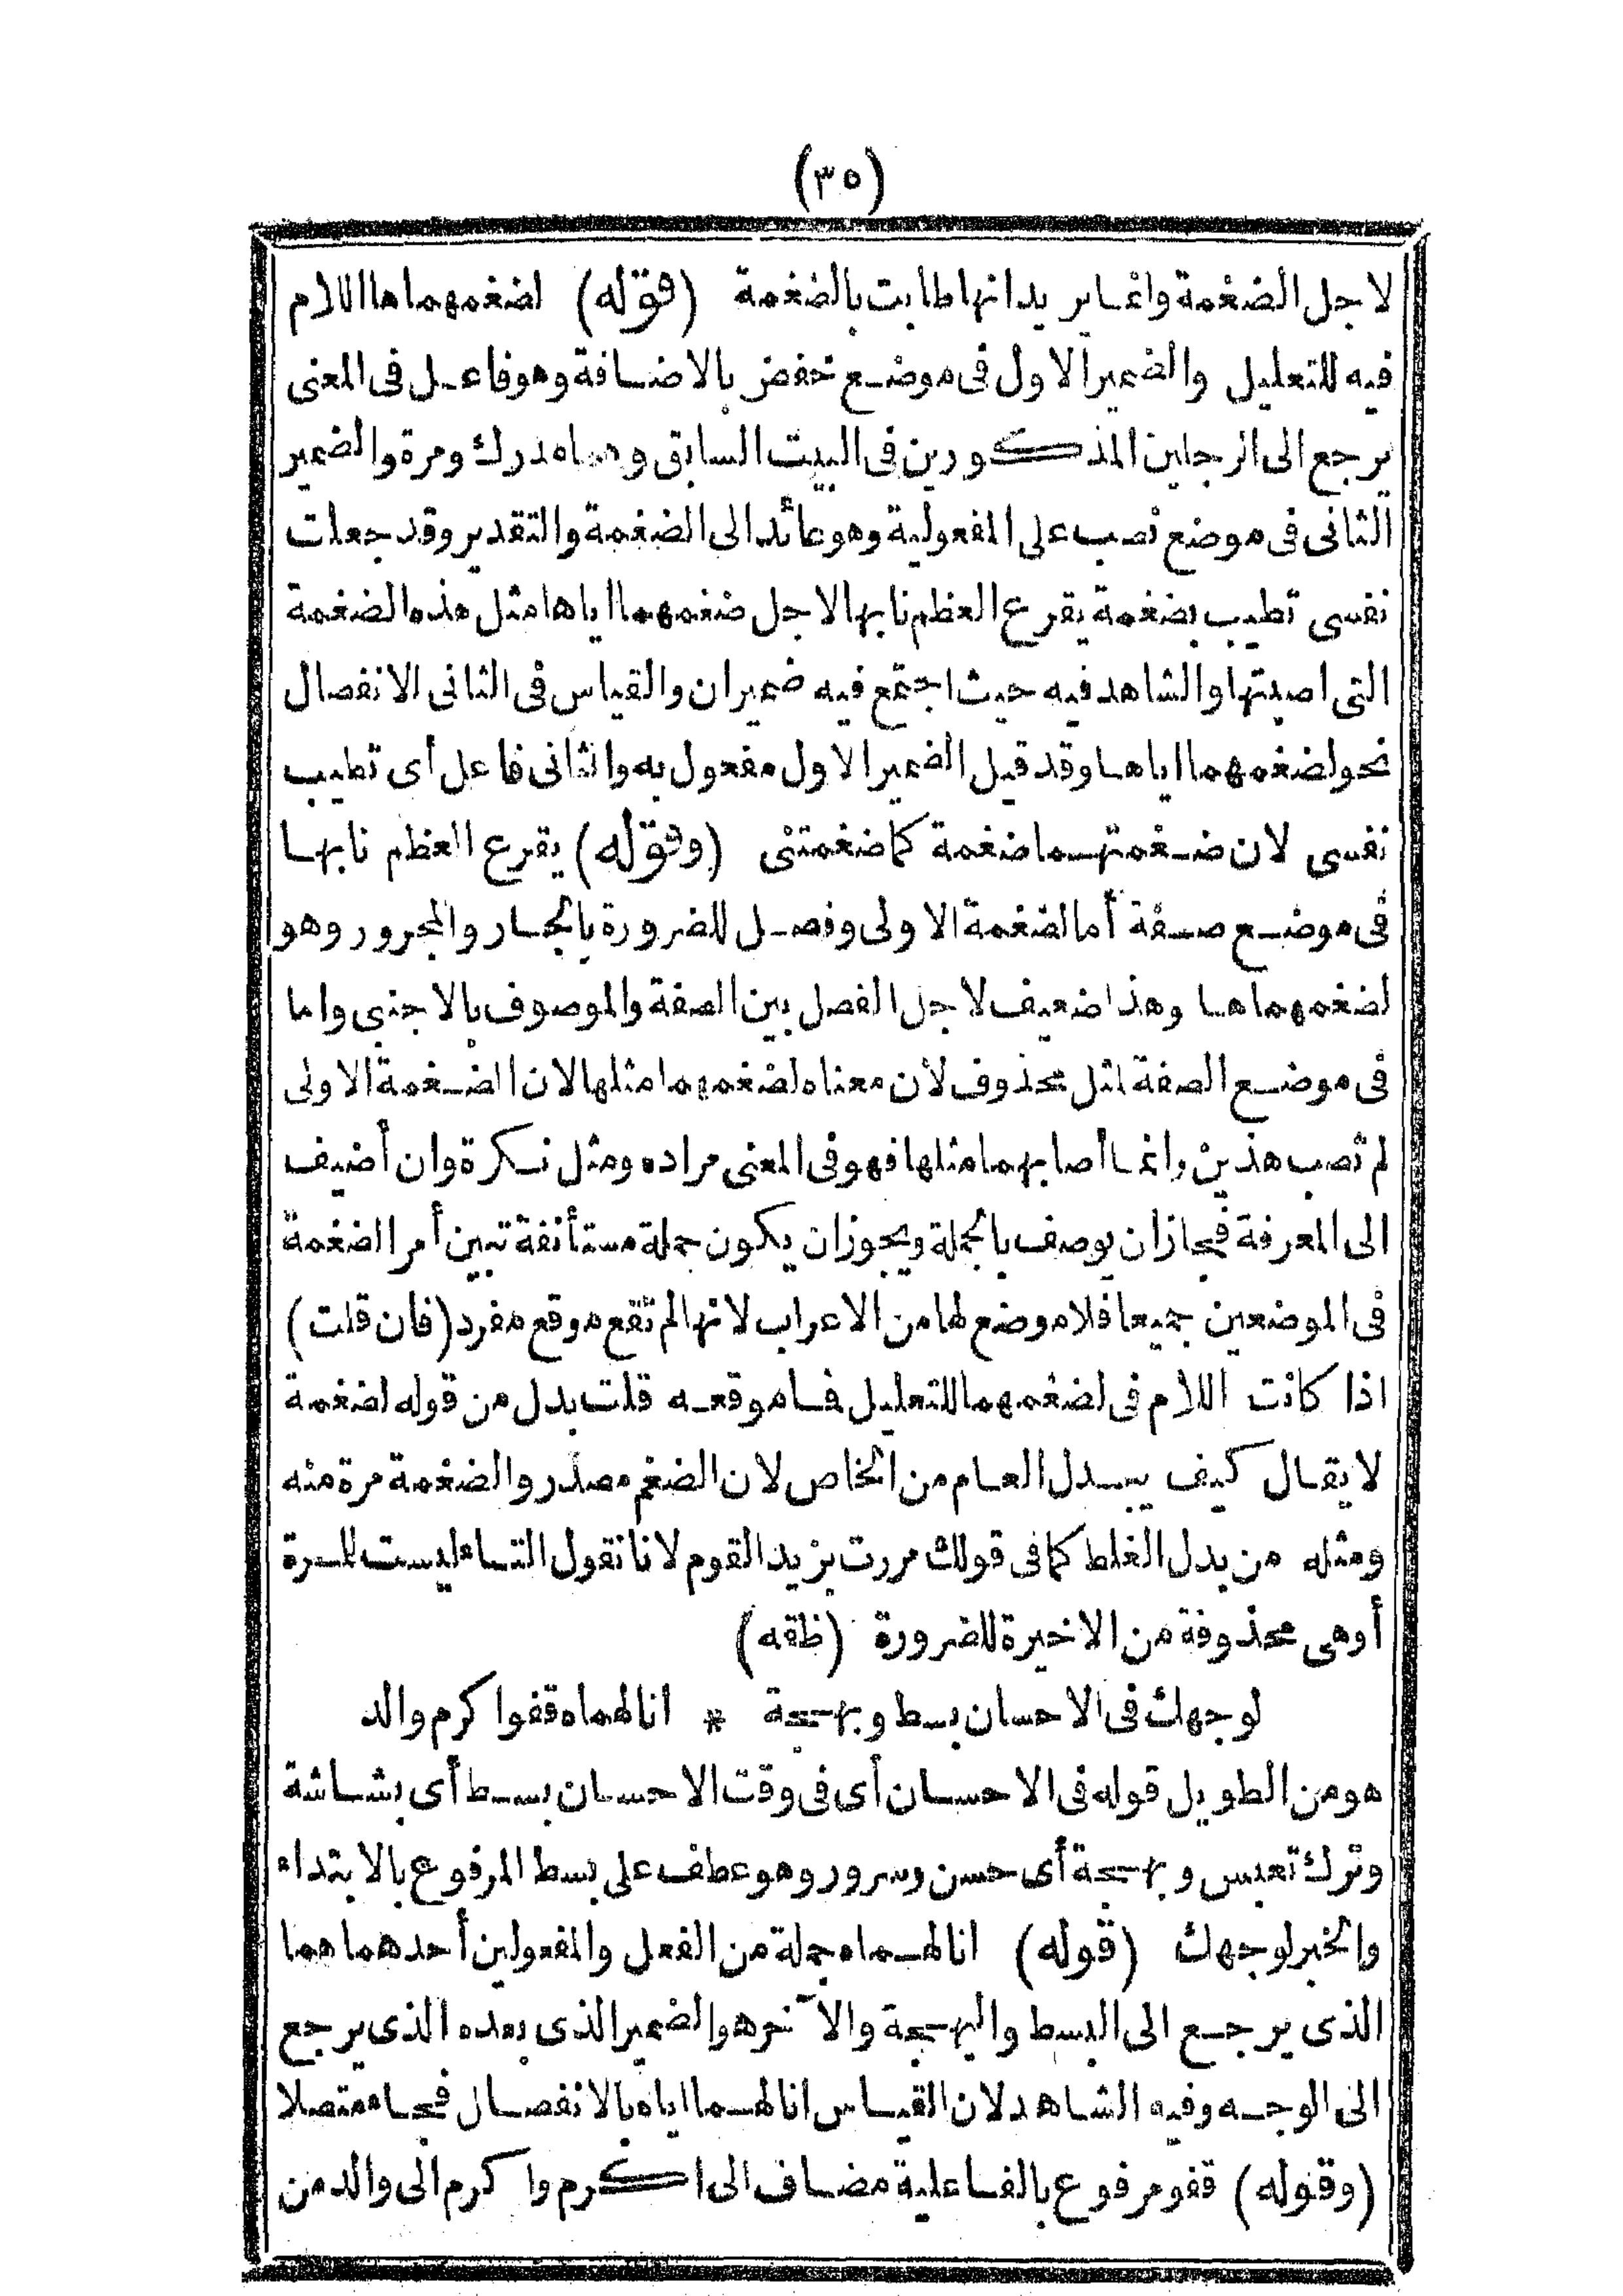 (٣٥)
لاجل الضغمة وانما يريد انها طابت بالضغمة (قوله) لضغمهماها اللام
فيه للتعليل والضمير الاول فى موضع خفض بالاضافة وهو فاعل فى المعنى
يرجع الى الرجلين المذكورين فى البيت السابق وهماه مدرك ومرة والضمير
الثانى فى موضع نصب على المفعولية وهو عائد الى الضغمة والتقدير وقد جعلت
نفسى تطيب بضغمة يقرع العظم نابها لاجل ضغمهما اياها مثل هذه الضغمة
التى اصبتها والشاهد فيه حيث اجتمع فيه ضميران والقياس فى الثانى الانفصال
نحو لضغمهما اياها وقد قيل الضمير الاول مفعول به والثانى فاعل أى تطيب
نفسى لان ضغمتهما ضغمة كما ضغمتنى (وقوله) يقرع العظم نابها
فى موضع صفة أما لضغمة الاولى وفصل للضرورة بالجار والمجرور وهو
لضغمهماها وهذا ضعيف لاجل الفصل بين الصفة والموصوف بالاجنبى واما
فى موضع الصفة لمثل محذوف لان معناه لضغمهما مثلها لان الضغمة الاولى
لم تصب هذين وانما أصابهما مثلها فهو فى المعنى مراده ومثل نكرة وان أضيف
الى المعرفة فجاز ان يوصف بالجملة ويجوز ان يكون جملة مستأنفة تبين أمر الضغمة
فى الموضعين جميعا فلا موضع لها من الاعراب لانها لم تقع موقع مفرد (فان قلت)
اذا كانت اللام فى لضغمهما للتعليل فما موقعه قلت بدل من قوله لضغمة
لا يقال كيف يبدل العام من الخاص لان الضغم مصدر والضغمة مرة منه
ومثله من بدل الغلط كما فى قولك مررت بزيد القوم لانا نقول التاء ليست للمرة
أو هى محذوفة من الاخيرة للضرورة (ظقه)
لوجهك فى الاحسان بسط وبهجة * انالهماه قفوا كرم والد
هو من الطويل قوله فى الاحسان أى فى وقت الاحسان بسط أى بشاشة
وترك تعبس وبهجة أى حسن وسرور وهو عطف على بسط المرفوع بالابتداء
والخبر لوجهك (قوله) انالهماه جملة من الفعل والمفعولين أحدهما هما
الذى يرجع الى البسط والبهجة والآخر هو الضمير الذى بعده الذى يرجع
الى الوجه وفيه الشاهد لان القياس انالهما اياه بالانفصال فجاء متصلا
(وقوله) قفو مرفوع بالفاعلية مضاف الى اكرم واكرم الى والد من